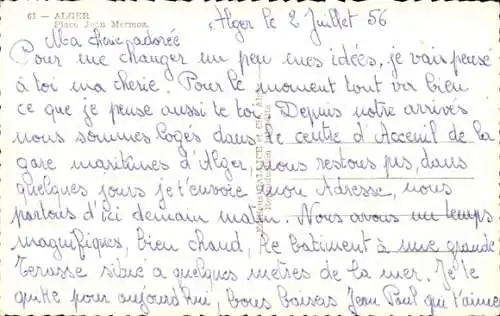 63 - ALGER
Place Jean Mermoz
Alger le 2 Juillet 56
Ma cherie adorée
Pour me changer un peu mes idées, je vais pensé
à toi ma cherie. Pour le moment tout va bien
ce que je pense aussi te toi. Depuis notre arrivés
nous sommes logés dans le centre d'Acceuil de la
gare maritimes d'Alger, nous restons pas, dans
quelques jours je t'envoie mon Adresse, nous
partons d'ici demain matin. Nous avons un temps
magnifiques, bien chaud, le batiment à une grande
Terasse situé a quelques metres de la mer. Je te
quitte pour aujourd'hui, bons baisers Jean Paul qui t'aime